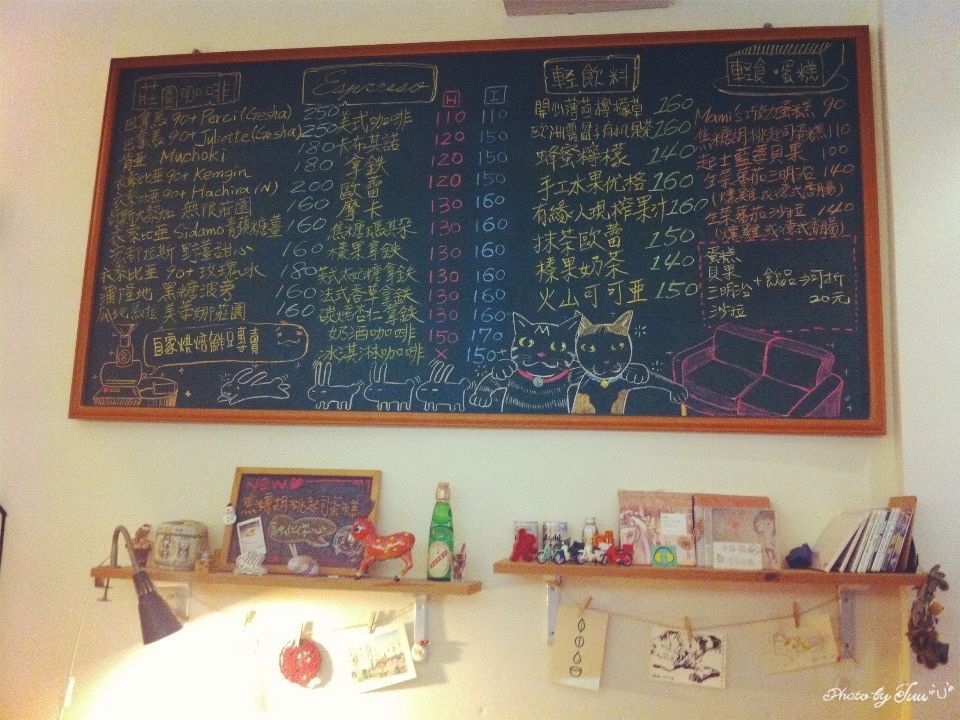 莊園咖啡
巴拿馬 90+ Perci (Gesha) 250
巴拿馬 90+ Juliette (Gesha) 250
肯亞 Muchoki 180
衣索比亞 90+ Kemgin 180
衣索比亞 90+ Hachira (N) 200
無限莊園 160
衣索比亞 Sidamo 160
野薑甜心 160
衣索比亞 90+ 玫瑰冰 180
蒲隆地 黑糖波旁 160
瓜地馬拉 美華娜莊園 160
自家烘焙鮮豆專賣
Espresso H I
美式咖啡 110 110
卡布其諾 120 150
拿鐵 120 150
歐蕾 120 150
摩卡 130 160
焦糖瑪琪朵 130 160
榛果拿鐵 130 160
太妃糖拿鐵 130 160
法式香草拿鐵 130 160
碳烤杏仁拿鐵 130 160
奶酒咖啡 150 170
冰淇淋咖啡 X 150+
輕飲料
開心薄荷檸檬草 160
160
蜂蜜檸檬 140
手工水果优格 160
有緣人現榨果汁 160
抹茶歐蕾 150
榛果奶茶 140
火山可可亞 150
輕食・蛋糕
Mami's 巧克力蛋糕 90
焦糖胡桃起司蛋糕 110
起士藍莓貝果 100
生菜番茄三明治 140
(燻雞 或 德式香腸)
生菜番茄沙拉 140
(燻雞 或 德式香腸)
蛋糕
貝果
三明治 + 飲品 → 可折
沙拉 20元
New
焦糖胡桃起司蛋糕
Photo by Juu